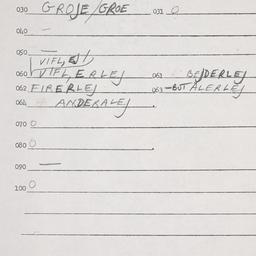 030 GROJE/GROE 031 O
040 —
050 —
VIFL, EJ/
060 VIFL, ERLEJ 061 BEJDERLEJ
062 FIRERLEJ 063 —BUT ALERLEJ
064 ANDERALEJ
070 O
080 O
090 —
100 O